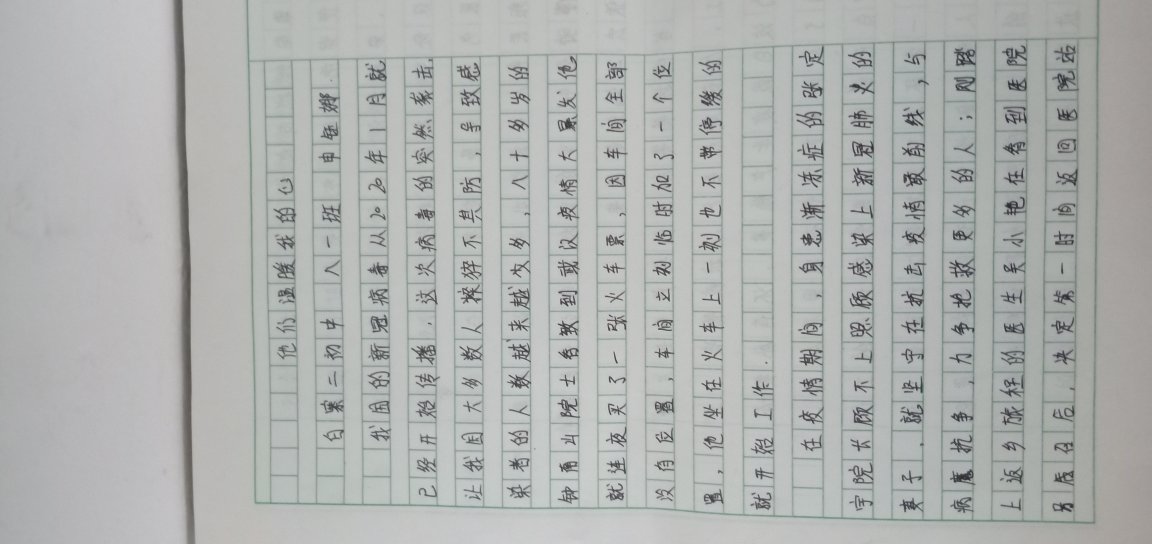 他们温暖我的心
白寨二初中 八一班 申钰娜
我国的新冠病毒从2020年1月就
已经开始传播，这次病毒的突然袭击，
让我国大多数人猝不其防，导致感
染者的人数越来越多，八十多岁的
钟南山院士看到武汉疫情大暴发他
就连夜买了一张火车票，因车间全部
没有位置，车间立刻临时加了一个位
置，他坐在火车上一刻也不带停缓的
就开始工作．
在疫情期间，身患渐冻症的张定
宇院长顾不上照顾感染上新冠肺炎的
妻子，就坚守在抗击疫情最前线，与
病魔抗争，力争抢救更多的人；刚踏
上返乡旅程的医生吴小艳在看到医院
召后，决定第一时间返回医院站